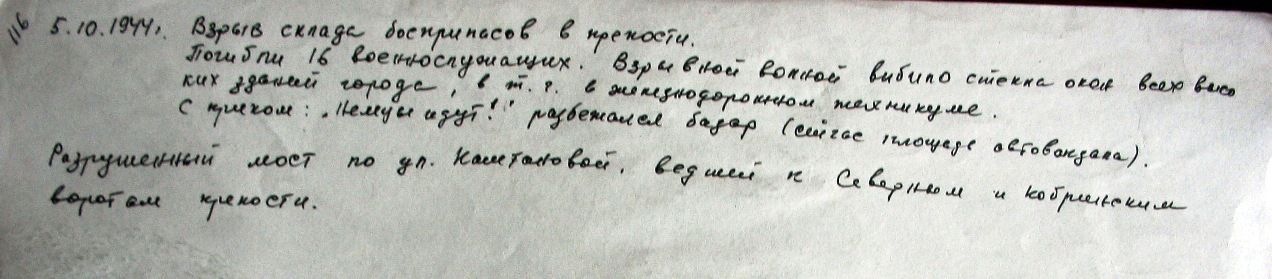 116 5.10.1944г. Взрыв склада боеприпасов в крепости.
Погибли 16 военнослужащих. Взрывной волной выбило стекла окон всех высо
ких зданий города, в т.ч. в железнодорожном техникуме.
С криком: "Немцы идут!" разбежался базар (сейчас площадь автовокзала).
Разрушенный мост по ул. Каштановой, ведшей к Северным и Кобринским
воротам крепости.